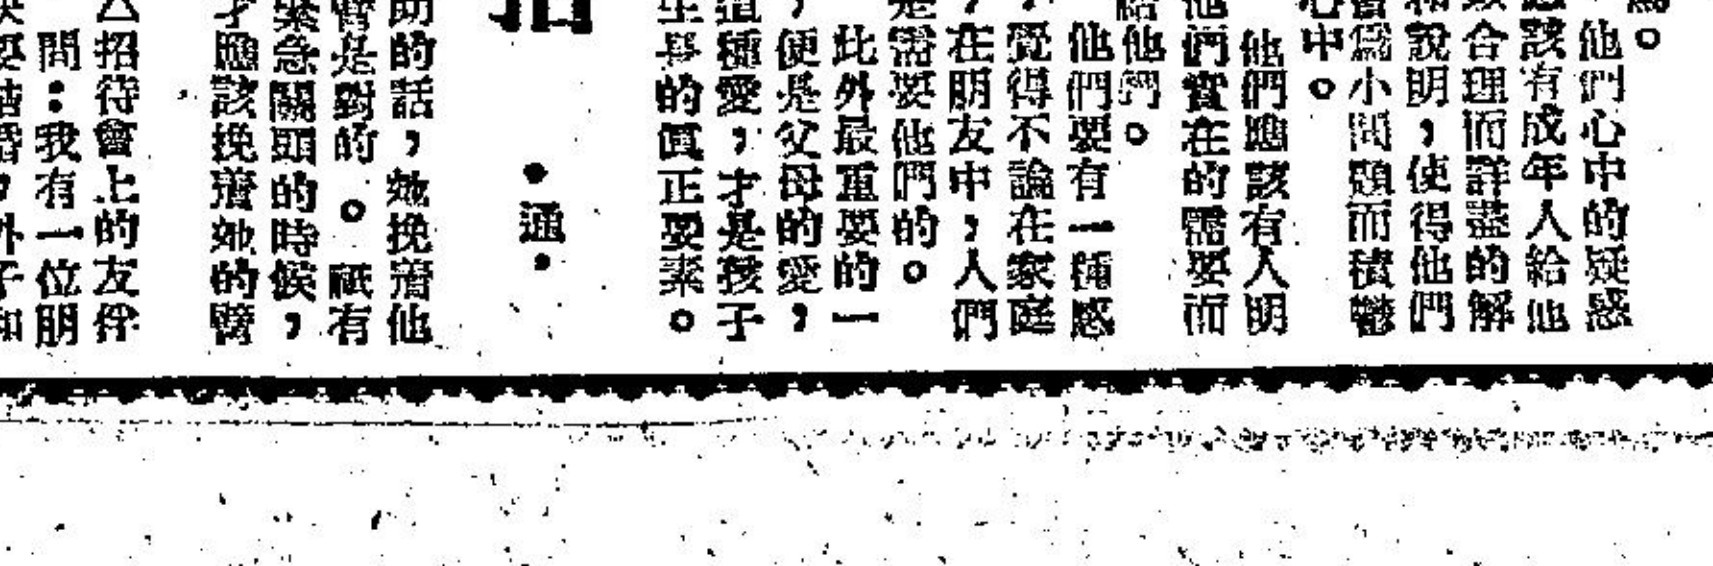 爲。
他們心中的疑惑
應該有成年人給他
以合理而詳盡的解
和說明，使得他們
會爲小問題而積鬱
心中。
他們應該有人明
他們實在的需要而
給他們。
他們要有一種感
，覺得不論在家庭
，在朋友中，人們
是需要他們的。
此外最重要的一
，便是父母的愛，
這種愛，才是孩子
生長的眞正要素。
•通•
助的話，她挽着他
臂是對的。祇有
緊急關頭的時候，
才應該挽着她的臂
△招待會上的友伴
問：我有一位朋
要結婚，外子和